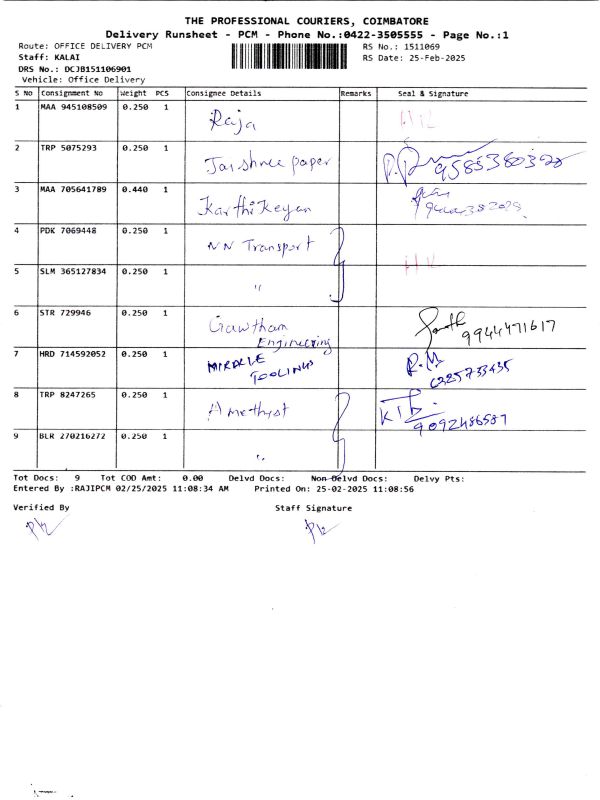 THE PROFESSIONAL COURIERS, COIMBATORE
Delivery Runsheet - PCM - Phone No.:0422-3505555 - Page No.:1
Route: OFFICE DELIVERY PCM RS No.: 1511069
Staff: KALAI RS Date: 25-Feb-2025
DRS No.: DCJB151106901
Vehicle: Office Delivery
S No Consignment No Weight PCS Consignee Details Remarks Seal & Signature
1 MAA 945108509 0.250 1 Raja
2 TRP 5075293 0.250 1 Jaishree paper 9585380328
3 MAA 705641789 0.440 1 KarthiKeyan
4 PDK 7069448 0.250 1 NN Transport
5 SLM 365127834 0.250 1 "
6 STR 729946 0.250 1 Gawtham Engineering 9944471617
7 HRD 714592052 0.250 1 MIRACLE TOOLINGS R.M
8 TRP 8247265 0.250 1 Amethyst 9092486587
9 BLR 270216272 0.250 1 "
Tot Docs: 9 Tot COD Amt: 0.00 Delvd Docs: Non Delvd Docs: Delvy Pts:
Entered By :RAJIPCM 02/25/2025 11:08:34 AM Printed On: 25-02-2025 11:08:56
Verified By Staff Signature